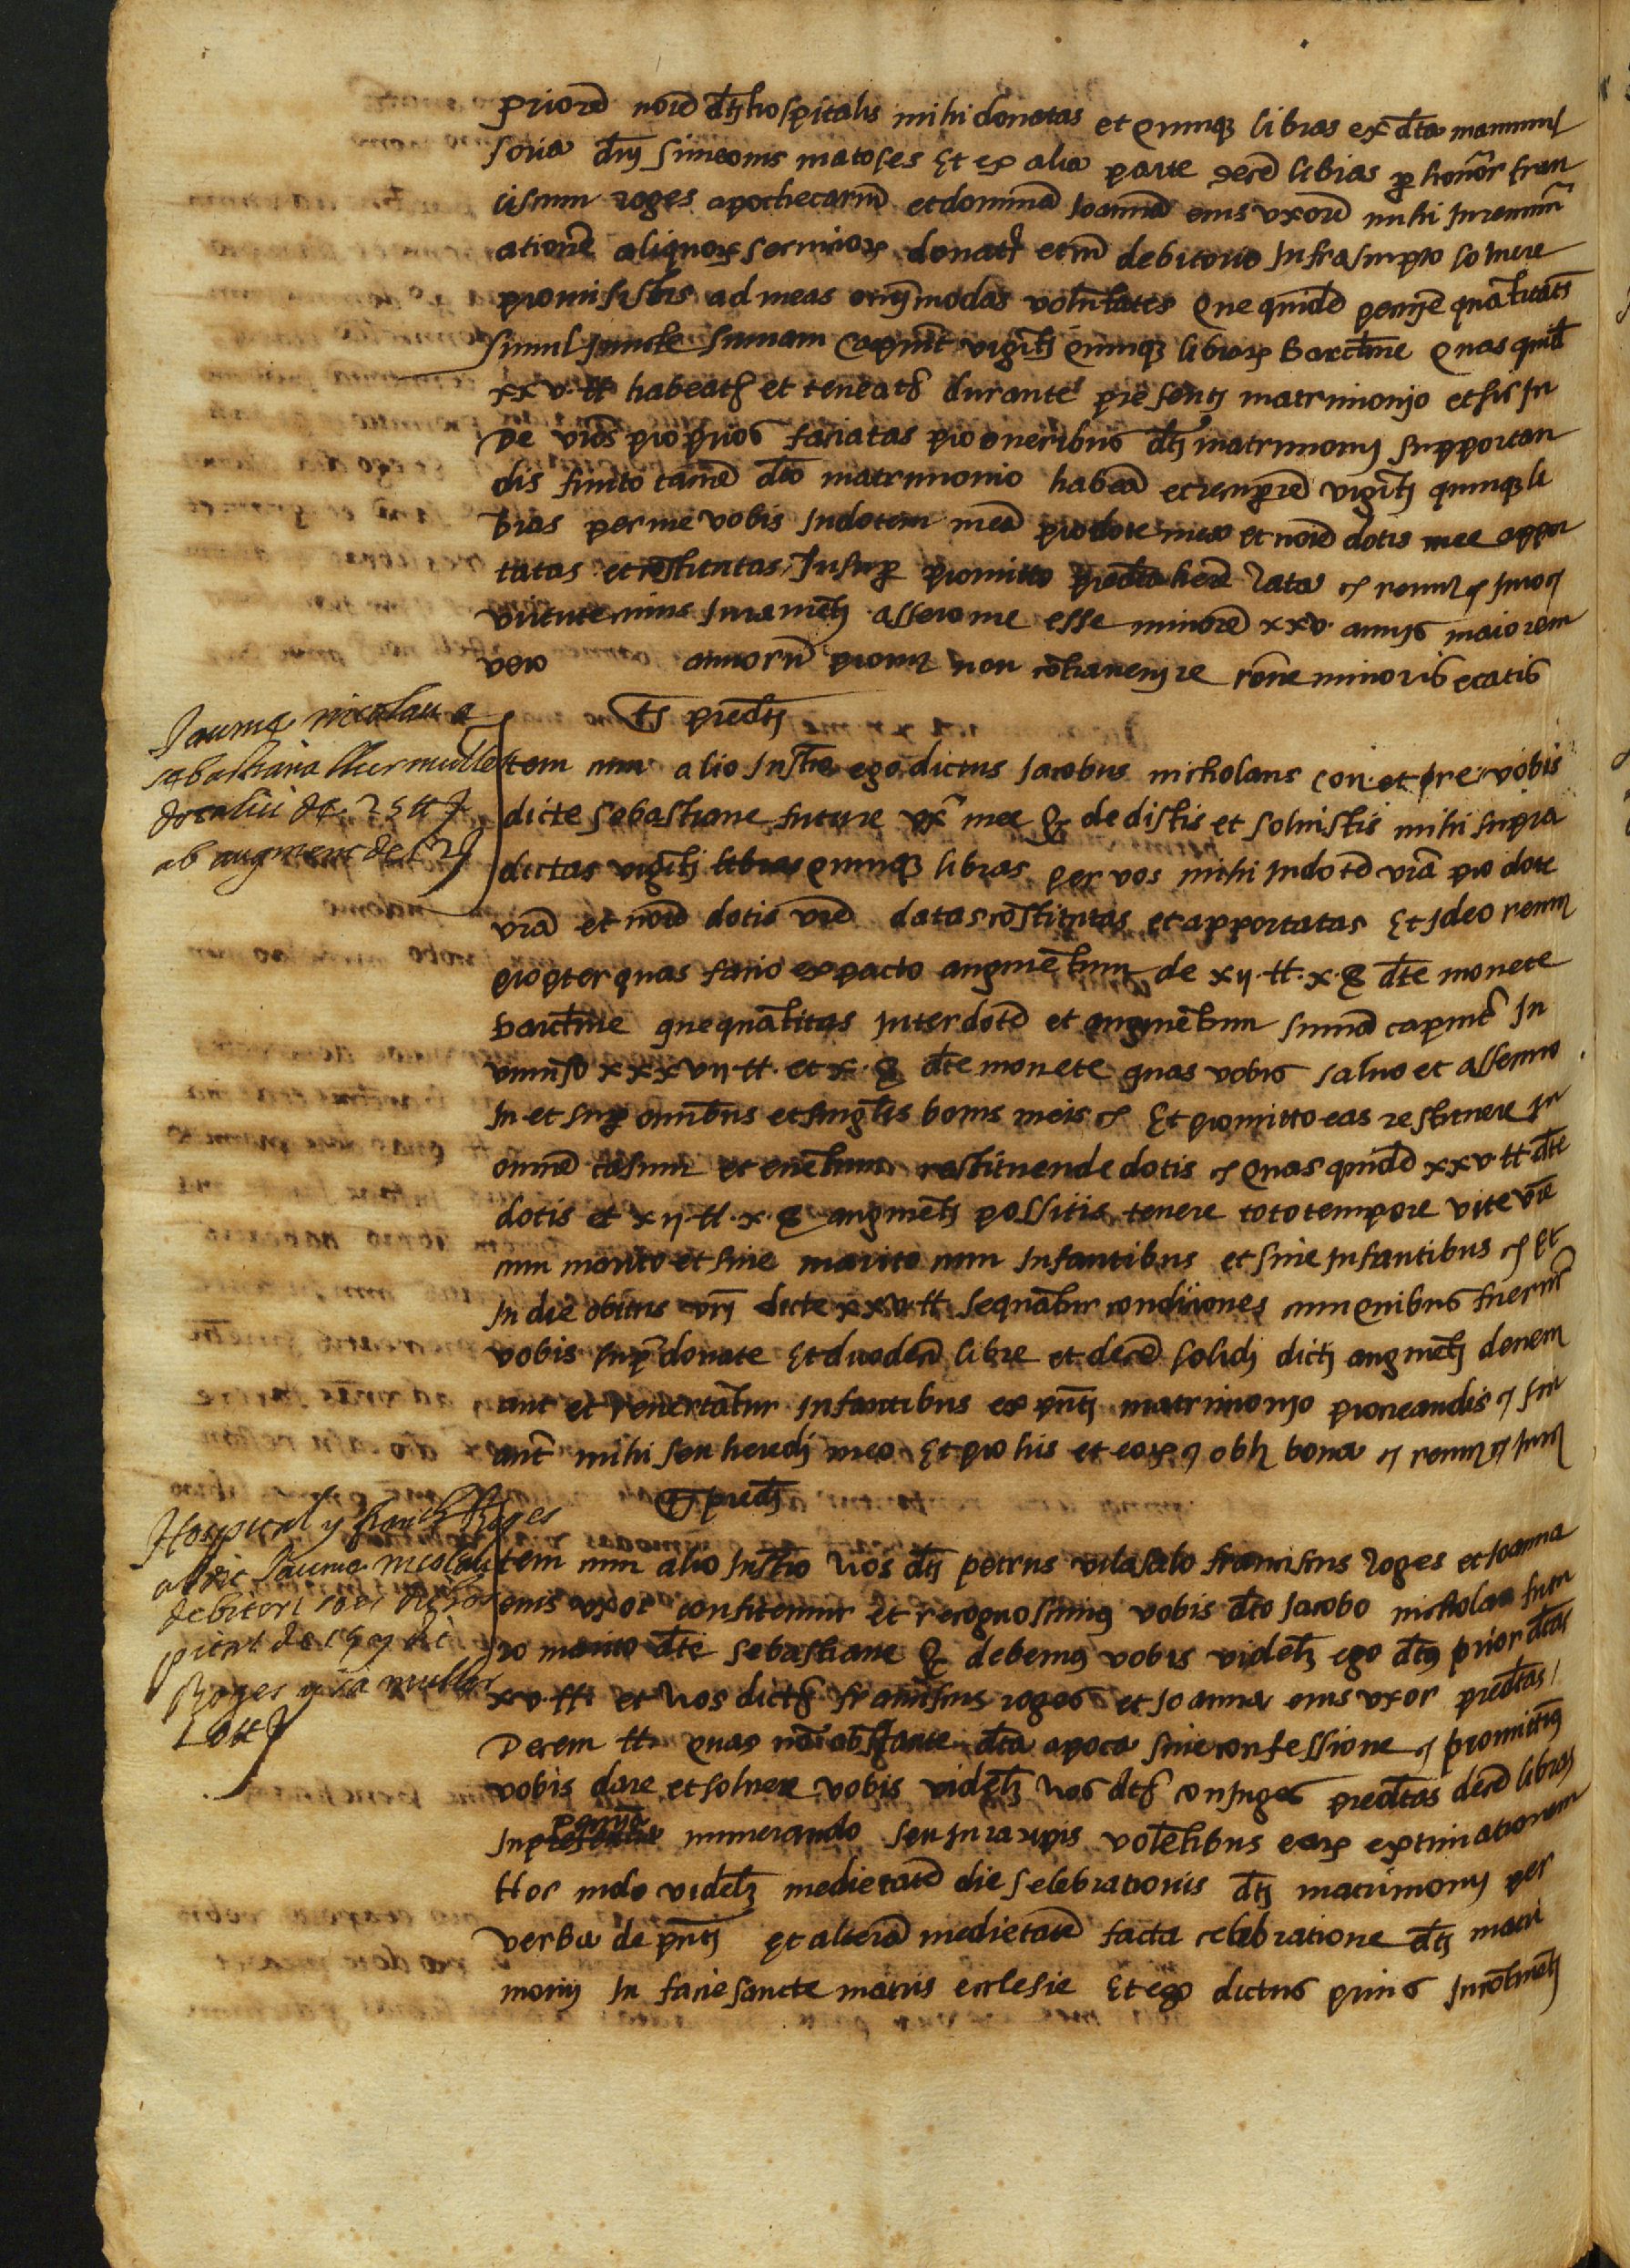 priorē noīe dt̄j hospitalis mihi donatas et quinqȝ libras ex dt̄a manumis
soria dn̄j simeonis matoses Et ex alia parte decē libras p honor̄ fran
ciscum roges apothecariū et dominā Joannā eius vxorē mihi In remun̄
ationē aliquoꝝ seruicioꝝ donatꝭ et in debitorio Infrascripto soluere
promisistis ad meas omnimodas volūtates Que quidē pecunie quātitates
simul juncte sumam capiūt viginti quinqȝ libraꝝ barchn̄e Quas quidē
xxv ₶ habeatꝭ et teneatꝭ durante presentj matrimonjo et sic In
de vr̄os proprios faciatas pro oneribus dt̄j matrimonij supportan
dis finito tamē dt̄o matrimonio habeā et recuperē vigintj quinqȝ li
bras per me vobis In dotem meā pro dote mea et noīe dotis mee appor
tatas et cōstitutas Insuper promitto predicta habere rata etc renun etc Juro etc
virtute cuius Juramētj assero me esse minorē xxv annjs maiorem
vero annorū promitto non cōtrauenjre rōne minoris etatis
Ts̄ predt̄j
Jaume nicolau a
sebastiana sa muller
de 25 ₶
ab augment de 12 ₶
Item cum alio Instr̄o ego dictus Jacobus nicholaus con. et fir̄e vobis
dicte sebastiane future vx̄ mee Q dedistis et soluistis mihi supra
dictas vigintj libras quinqȝ libras per vos mihi In dotē vr̄a pro dote
vr̄a et noīe dotis vr̄e datas cōstitutas et apportatas Et Jdeo renun
propter quas facio ex pacto augmētum de xij ₶ x ꝭ dt̄e monete
barchn̄e que quātitas Inter dotē et augmētum sumā capiūt In
vniuerso xxxvij ₶ et x ꝭ dt̄e monete quas vobis saluo et assecuro
In et super omnibus et singulis bonis meis etc Et promitto eas restituere In
omnē casum et euētum restituende dotis etc Quas quidē xxv ₶ dt̄e
dotis et xij ₶ x ꝭ augmētj possitis tenere toto tempore vite vr̄e
cum marito et sine marito cum Infantibus et sine Infantibus etc Et
In die obitus vr̄j dicte xxv ₶ sequātur condiciones cum quibus fuerūt
vobis supra donate Et duodecī libre et decē solidj dictj augmētj deuen
ant et reuertātur Infantibus ex pn̄tj matrimonjo procreandis etc sin
aūt mihi seu heredj meo Et pro his et eoꝝ etc oblī bona etc renun etc Juro
Ts̄ predt̄j
Hospital y Franch Roges
al dit Jaume nicolau
debitori
Roges y sa muller
10 ₶
Item cum alio Instr̄o Nos dt̄j petrus vilasalo franciscus roges et Joanna
eius vxor confitemur et recognoscimꝰ vobis dt̄o Jacobo nicholau futu
ro marito dt̄e sebastiane Q debemꝰ vobis videlȝ ego dt̄ꝰ prior dt̄as
xv ₶ et Nos dictꝭ franciscus roges et Joanna eius vxor predt̄as
Decem ₶ quas nō obstante dt̄a apoca siue confessione etc promittimꝰ
vobis dare et soluere vobis videlȝ Nos dt̄ꝭ coniuges predt̄as decē libras
In presentia pecunia numerando seu In rauxipis voletibus eaꝝ extimationem
Hoc modo videlȝ medietatē die celebrationis dt̄j matrimonij per
verba de pn̄tj Et alterā medietatē facta celebratione dt̄j matri
monij In facie sancte matris ecclesie Et ego dictus prius Incōtinētj